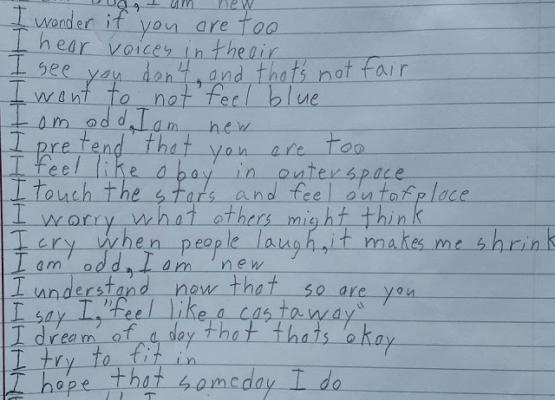 I am new
I wonder if you are too
I hear voices in theair
I see you don't, and that's not fair
I want to not feel blue
I am odd, I am new
I pretend that you are too
I feel like a boy in outerspace
I touch the stars and feel outofplace
I worry what others might think
I cry when people laugh, it makes me shrink
I am odd, I am new
I understand now that so are you
I say I, "feel like a castaway"
I dream of a day that thats okay
I try to fit in
I hope that someday I do